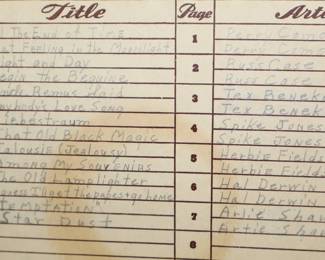 Title Page Art
The End of Time 1 Perry Como
at Feeling in the Moonlight Perry Como
Night and Day 2 Russ Case
Begin the Beguine Russ Case
Uncle Remus Said 3 Tex Benek
Anybody's Love Song Tex Benek
Liebestraum 4 Spike Jones
That Old Black Magic Spike Jones
Jalousie (Jealousy) 5 Herbie Fields
Among My Souvenirs Herbie Fields
The Old Lamplighter 6 Hal Derwin
Hal Derwin
"Temptation" 7 Artie Shaw
Star Dust Artie Shaw
8